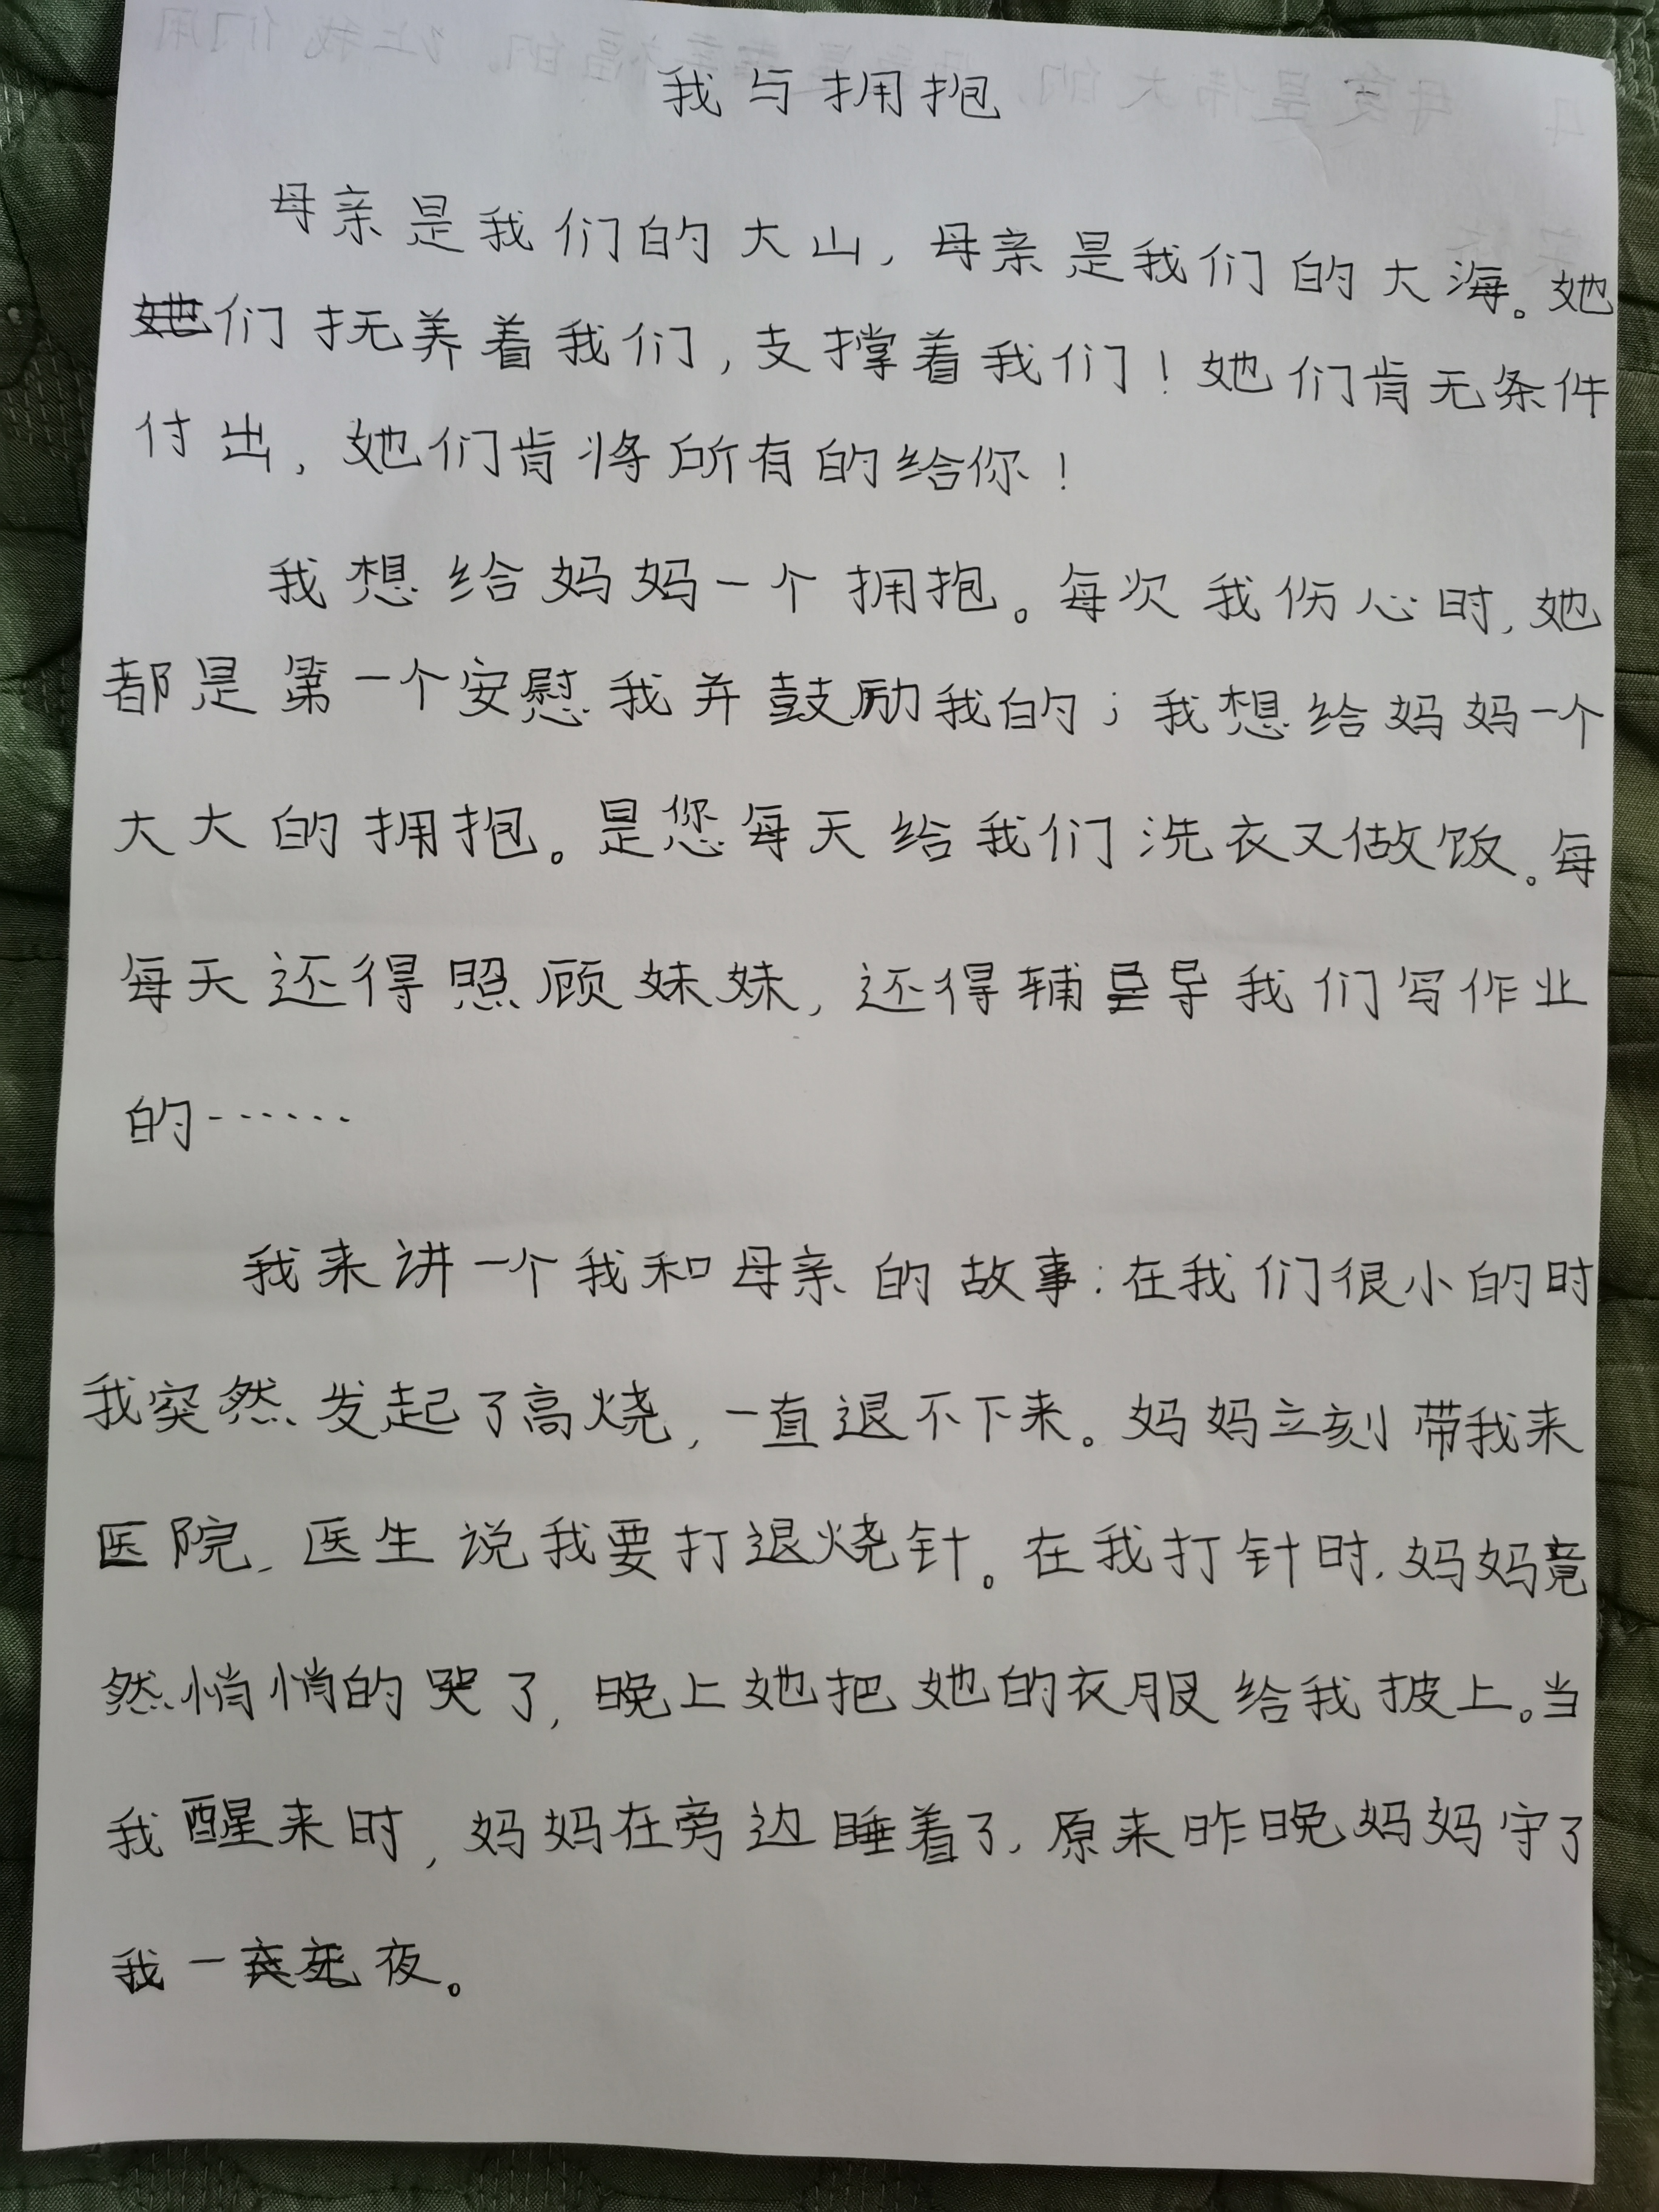 我与拥抱
母亲是我们的大山，母亲是我们的大海。她
们抚养着我们，支撑着我们！她们肯无条件
付出，她们肯将所有的给你！
我想给妈妈一个拥抱。每次我伤心时，她
都是第一个安慰我并鼓励我的；我想给妈妈一个
大大的拥抱。是您每天给我们洗衣又做饭。每
每天还得照顾妹妹，还得辅导我们写作业
的……
我来讲一个我和母亲的故事：在我们很小的时
我突然发起了高烧，一直退不下来。妈妈立刻带我来
医院，医生说我要打退烧针。在我打针时，妈妈竟
然悄悄的哭了，晚上她把她的衣服给我披上。当
我醒来时，妈妈在旁边睡着了，原来昨晚妈妈守了
我一夜。